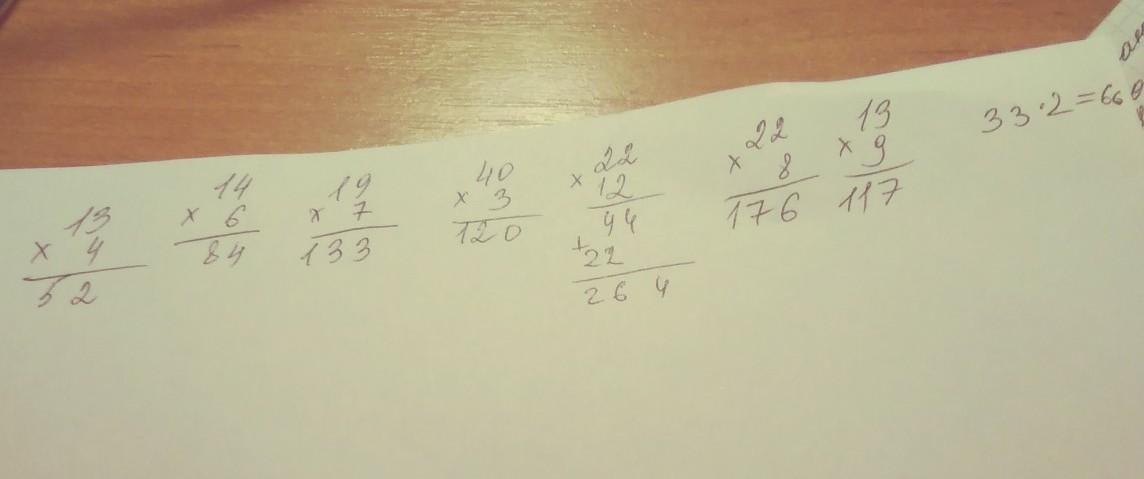 13
× 4
52
14
× 6
84
19
× 7
133
40
× 3
120
× 22
12
44
+
22
264
22
× 8
176
13
× 9
117
33·2=66